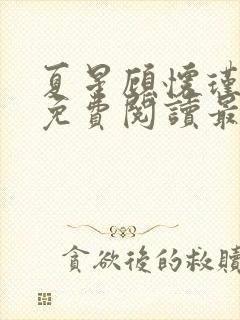 夏星顧懷瑾
免費閱讀最
貪欲後的救贖